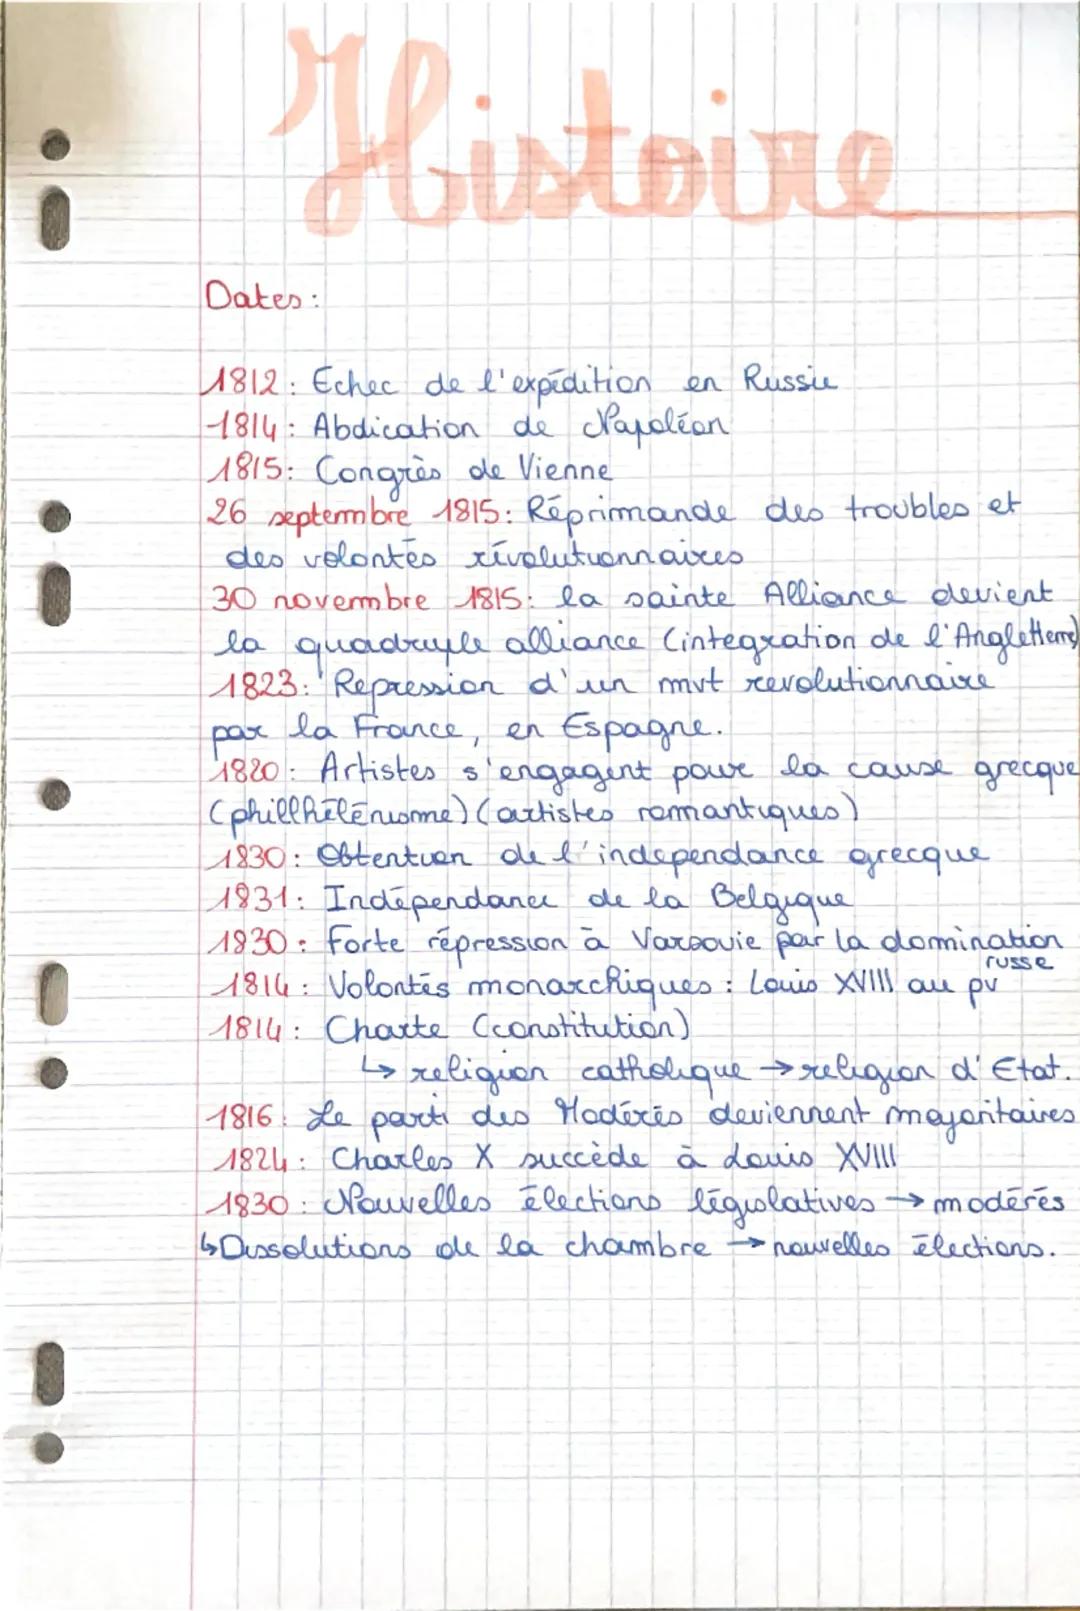 Histoire
Dates :
1812 : Echec de l'expédition en Russie
1814 : Abdication de Napoléon
1815 : Congrès de Vienne
26 septembre 1815 : Réprimande des troubles et
des volontés révolutionnaires
30 novembre 1815 : la sainte Alliance devient
la quadruple alliance (integration de l'Angleterre)
1823 : Repression d'un mvt revolutionnaire
par la France, en Espagne.
1820 : Artistes s'engagent pour la cause grecque
(phillhélénisme) (artistes romantiques)
1830 : Obtention de l'independance grecque
1831 : Indépendance de la Belgique
1830 : Forte répression à Varsovie par la domination
russe
1814 : Volontés monarchiques : Louis XVIII au pv
1814 : Charte (constitution)
↳ religion catholique → religion d'Etat.
1816 : Le parti des Modérés deviennent majoritaires
1824 : Charles X succède à Louis XVIII
1830 : Nouvelles élections législatives → modérés
↳ Dissolutions de la chambre → nouvelles élections.